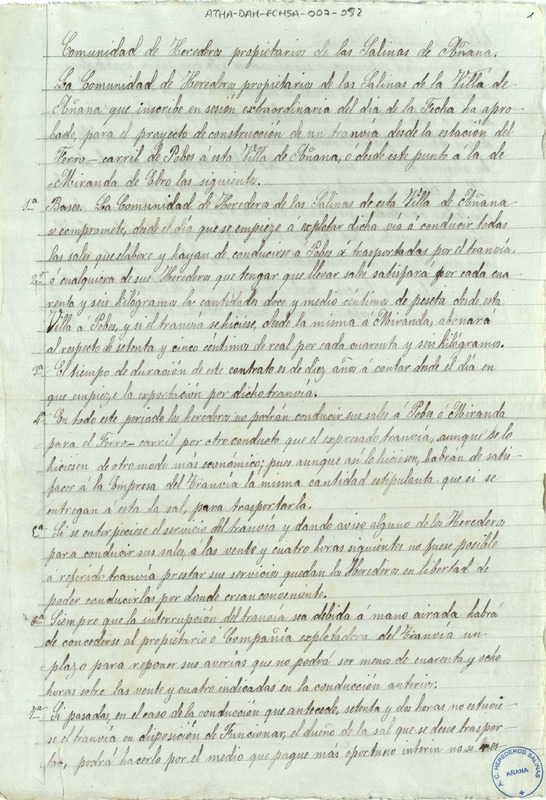 ATHA-DAH-FCHSA-007-052
1
Comunidad de Herederos propietarios de las Salinas de Añana.
La Comunidad de Herederos propietarios de las Salinas de la Villa de
Añana que inscribe en sesión extraordinaria del día de la Fecha ha apro-
bado, para el proyecto de construcción de un tranvía desde la estación del
Ferro-carril de Pobes á esta Villa de Añana, ó desde este punto á la de
Miranda de Ebro las siguientes.
1ª Bases. La Comunidad de Herederos de las Salinas de esta Villa de Añana
se compromete, desde el día que se empieze á explotar dicha vía á conducir todas
las sales que elabore y hayan de conducirse á Pobes ó trasportadas por el tranvía.
2ª ó cualquiera de sus Herederos que tengar que llevar sales satisfará por cada cua-
renta y seis kilógramos la cantidad de doce y medio céntimos de peseta desde esta
Villa á Pobes, y si el tranvía se hiciese, desde la misma á Miranda, abonará
al respecto de setenta y cinco céntimos de real por cada cuarenta y seis kilógramos.
3ª El tiempo de duración de este contrato es de diez años á contar desde el día en
que empieze la exportación por dicho tranvía.
4ª En todo este periodo los herederos no podrán conducir sus sales á Pobes ó Miranda
para el Ferro-carril por otro conducto que el expresado tranvía, aunque se lo
hiciesen de otro modo más económico; pues aunque así lo hiciesen, habrán de satis-
facer á la Empresa del Tranvía la misma cantidad estipulanta que si se
entregan á esta la sal, para trasportarla.
5ª Si se entorpeciese el servicio del tranvía y dando aviso alguno de los Herederos
para conducir sus sales, a las vente y cuatro horas siguientes no fuese posible
a referido tranvía prestar sus servicios quedan los Herederos en libertad de
poder conducirlas por donde crean conveniente.
6ª Siempre que la interrupción del tranvía sea debida á mano airada habrá
de concederse al propietario ó Compañía explotadora del Tranvía un
plazo para reponer sus averías que no podrá ser menos de cuarenta y ocho
horas sobre las vente y cuatro indicadas en la conducción anterior.
7ª Si pasadas, en el caso de la conducción que antecede, setenta y dos horas no estuvie-
se el tranvía en disposición de Funcionar, el dueño de la sal que se desee traspor-
tar, podrá hacerlo por el medio que pague más oportuno interin no se
A.C. HEREDEROS SALINAS
AÑANA